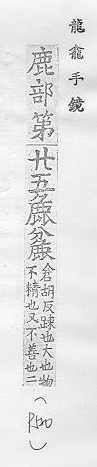 龍龕手鏡
鹿部第廿五
麁
麤
倉胡反踈也大也物
不精也又不善也二
(P120)